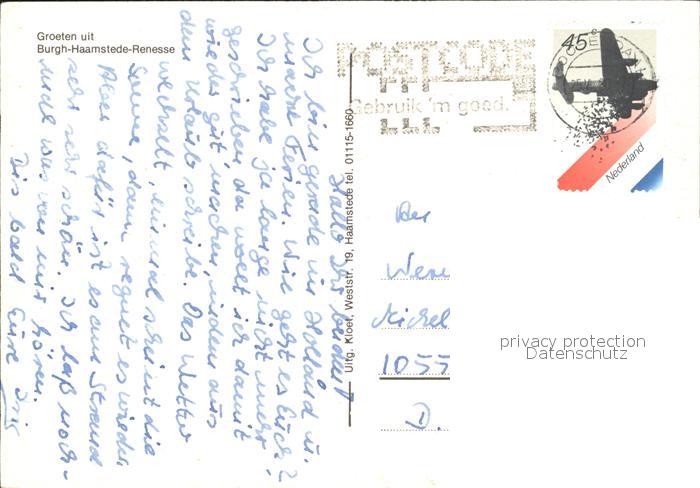 Groeten uit
Burgh-Haamstede-Renesse
Uitg. Kloet, Weststr. 19, Haamstede tel. 01115-1660
POSTCODE
Gebruik 'm goed.
45 c
Nederland
Hallo Ihr beiden!
Ich bin gerade in Holland u.
mache Ferien. Wie geht es Euch?
Ich habe ja lange nicht mehr
geschrieben, da wollt ich damit
wieder gut machen, indem aus
dem Urlaub schreibe. Das Wetter
wechselt, einmal scheint die
Sonne, dann regnet es wieder.
Aber dafür ist es am Strand
sehr sehr schön. Ich laß noch-
mals was von mir hören.
Bis bald Eure Iris
An
Michel
1055
D.
privacy protection
Datenschutz